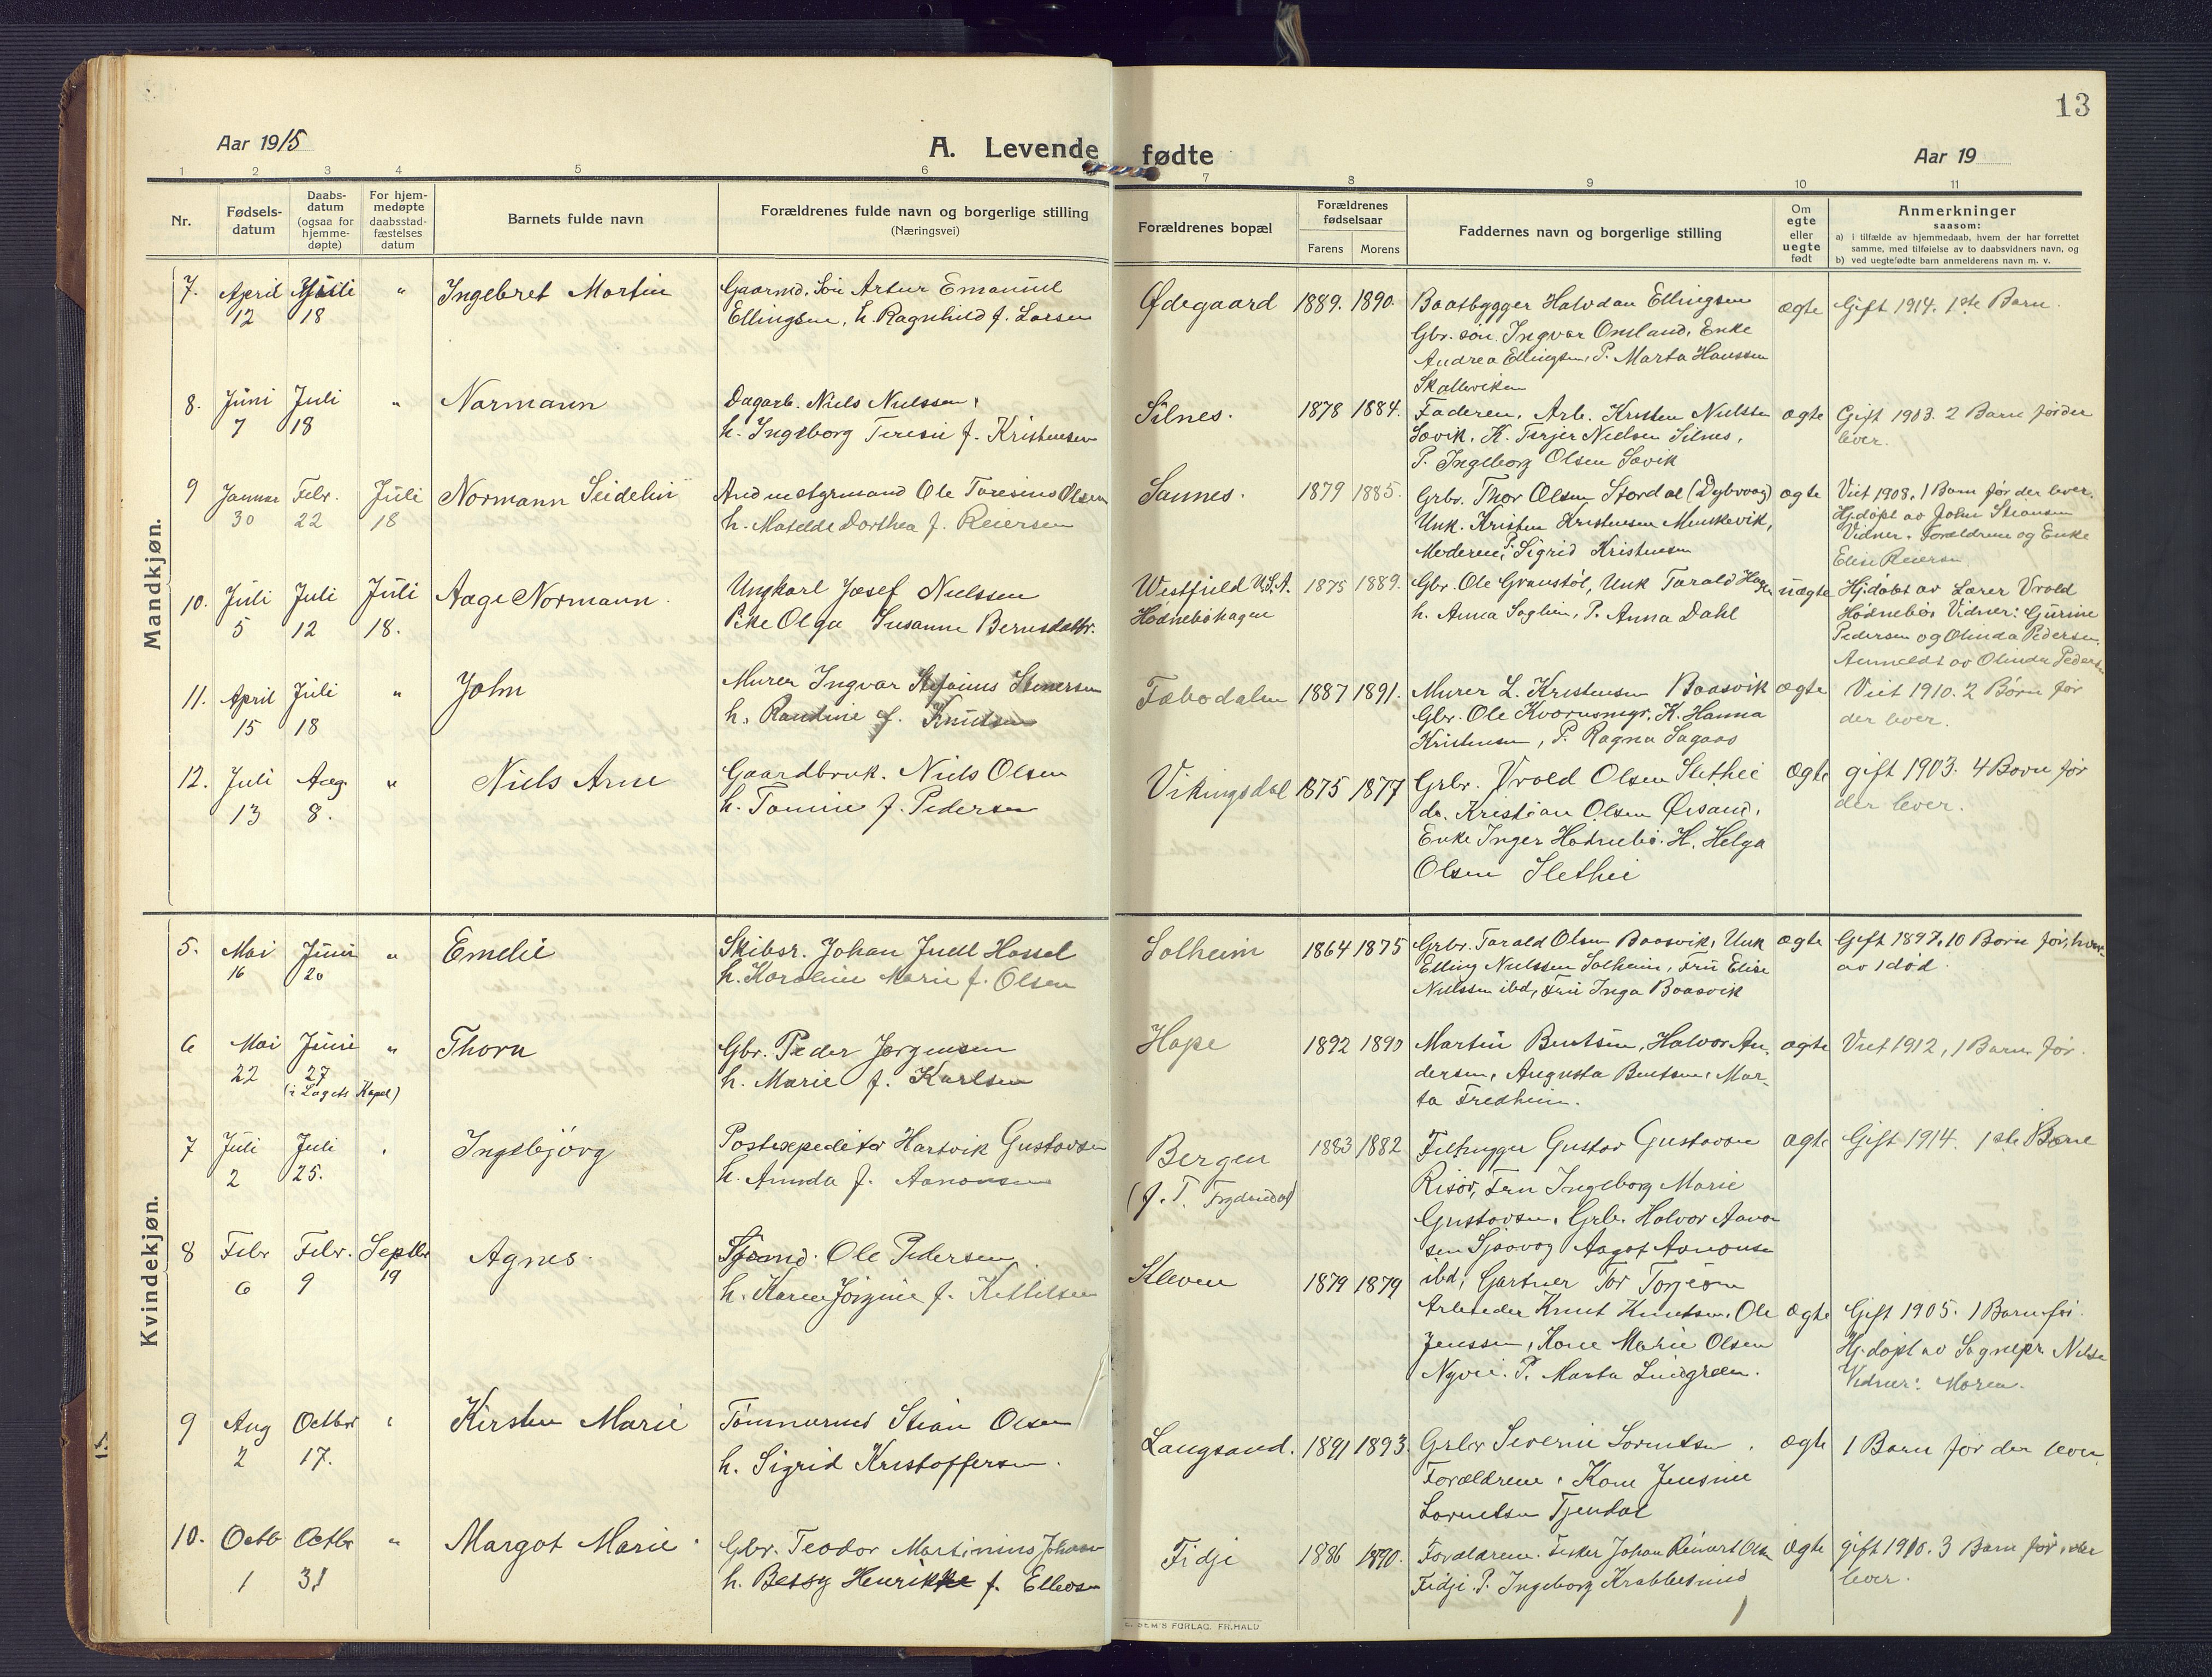 13
Aar 1915
A. Levende fødte
Aar 19
1 2 3 4 5 6 7 8 9 10 11
Nr.
Fødsels-
datum
Daabs-
datum
(ogsaa for
hjemme-
døpte)
For hjem-
medøpte
daabsstad-
fæstelses
datum
Barnets fulde navn
Forældrenes fulde navn og borgerlige stilling
(Næringsvei)
Forældrenes bopæl
Forældrenes
fødselsaar
Farens Morens
Faddernes navn og borgerlige stilling
Om
egte
eller
uegte
født
Anmerkninger
saasom:
a) i tilfælde av hjemmedaab, hvem der har forrettet
samme, med tilføielse av to daabsvidners navn, og
b) ved uegtefødte barn anmelderens navn m. v.
Mandkjøn.
7. April 12 Juli 18 " Ingebret Martin
Gaarmd. Søn Artur Emanuel
Ellingsen, h. Ragnhild f. Larsen
Ødegaard 1889. 1890.
Baatbygger Halvdan Ellingsen
Gbr. søn Ingvar Omland, Enke
Andrea Ellingsen, P. Marta Hanssen
Skalleviken
ægte
Gift 1914. 1ste Barn.
8. Juni 7 Juli 18 " Normann
Dagarb. Niels Nielssen,
h. Ingeborg Teresie f. Kristensen
Silnes. 1878 1884.
Faderen, Arb. Kristen Nielssen
Søvik, K. Terjer Nielsen Silnes,
P. Ingeborg Olsen Søvik
ægte
Gift 1903. 2 Barn før der
lever.
9 Januar 30 Febr. 22 Juli 18 Normann Seidelin
Andenstyrmand Ole Toresius Olsen
h. Matelde Dorthea f. Reiersen
Sannes. 1879 1885.
Grbr. Thor Olsen Stordal (Dybvaag)
Unk. Kristen Kristensen Menskevik,
Moderen, P. Sigrid Kristensen
ægte
Viet 1908. 1 Barn før der lever.
Hj.døpt av John Stiansen
Vidner. Forældrene og Enke
Elise Reiersen
10. Juli 5 Juli 12 Juli 18. Aage Normann.
Ungkarl Josef Nielssen
Pike Olga Susanne Berntsdatter.
Westfield U.S.A.
Hødnebøhagen
1875 1889.
Gbr. Ole Granstøl, Unk Tarald Hagen
h. Anna Saglien, P. Anna Dahl
uægte
Hj.døbt av Lærer Vrold
Hødnebø. Vidner: Gurine
Pedersen og Olinda Pedersen.
Anmeldt av Olinda Pedersen
11. April 15 Juli 18 " John
Murer Ingvar Stefanius Steinersen
h. Randine f. Knutsen
Fæbodalen 1887 1891.
Murer L. Kristensen Baasvik
Gbr. Ole Kvernsmyr, K. Hanna
Kristensen, P. Ragna Sagaas
ægte
Viet 1910. 2 Børn før
der lever.
12. Juli 13 Aug. 8. " Niels Arne
Gaardbruk. Niels Olsen
h. Tomine f. Pedersen
Vikingsdal 1875 1877
Grbr. Vrold Olsen Slethei
do. Kristian Olsen Øisand,
Enke Inger Hødnebø. H. Helga
Olsen Slethei
ægte
gift 1903. 4 Børn før
der lever.
Kvindekjøn.
5. Mai 16 Juni 20 " Emelie
Skibsr. Johan Juell Hassel
h. Karoline Marie f. Olsen
Solheim 1864 1875
Grbr. Tarald Olsen Baasvik, Unk
Elling Nielssen Solheim, Fru Elise
Nielssen ibd, Fru Inga Baasvik
ægte
Gift 1897. 10 Børn før, hvor-
av 1 død.
6 Mai 22 Juni 27 " Thora
(i Lagets Kapel)
Gbr. Peder Jørgensen
h. Marie f. Karlsen
Hope 1892 1890
Martin Bentsen, Halvor An-
dersen, Augusta Bentsen, Mar-
ta Fredheim.
ægte
Viet 1912, 1 Barn før.
7 Juli 2 Juli 25. " Ingebjørg
Postexpeditør Hartvik Gustavsen
h. Amnda f. Aanonsen
Bergen
1883 1882
Gustav Gustavsen
Risør, Fru Ingeborg Marie
Gustavsen, Grb. Halvor Aanon-
sen Sjøvaag Aagot Aanonsen
ibd, Gartner Tor Torjesen
ægte
Gift 1914. 1ste Barn
8 Febr 6 Febr. 9 Septbr 19 Agnes.
Styrmd. Ole Pedersen
h. Karen Jørgine f. Kittelsen
Kleven 1879 1879
Arbeider Knut Knutsen, Ole
Jenssen, Kone Marie Olsen
Nyvei. P. Marta Lindgreen.
ægte
Gift 1905. 1 Barn før.
Hj.døpt av Sognepr. Nilsen
Vidner: Moren.
9 Aug 2 Octbr 17. " Kirsten Marie
Tømmermd Stian Olsen
h. Sigrid Kristoffersen.
Langsand. 1891 1893.
Grbr Severin Lorentsen,
Forældrene, Kone Jensine
Lorentsen Tjendal
ægte
1 Barn før der lever.
10. Octb 1 Octbr 31 " Margot Marie
Gbr. Teodor Martinius Johnsen
h. Betsy Henrikke f. Ellevsen
Fidje 1886 1890.
Forældrene. Fisker Johan Reinert Olsen
Fidje. P. Ingeborg Krabbesund
ægte
gift 1910. 3 Barn før, der
lever.
FORLAG. FR.HALD